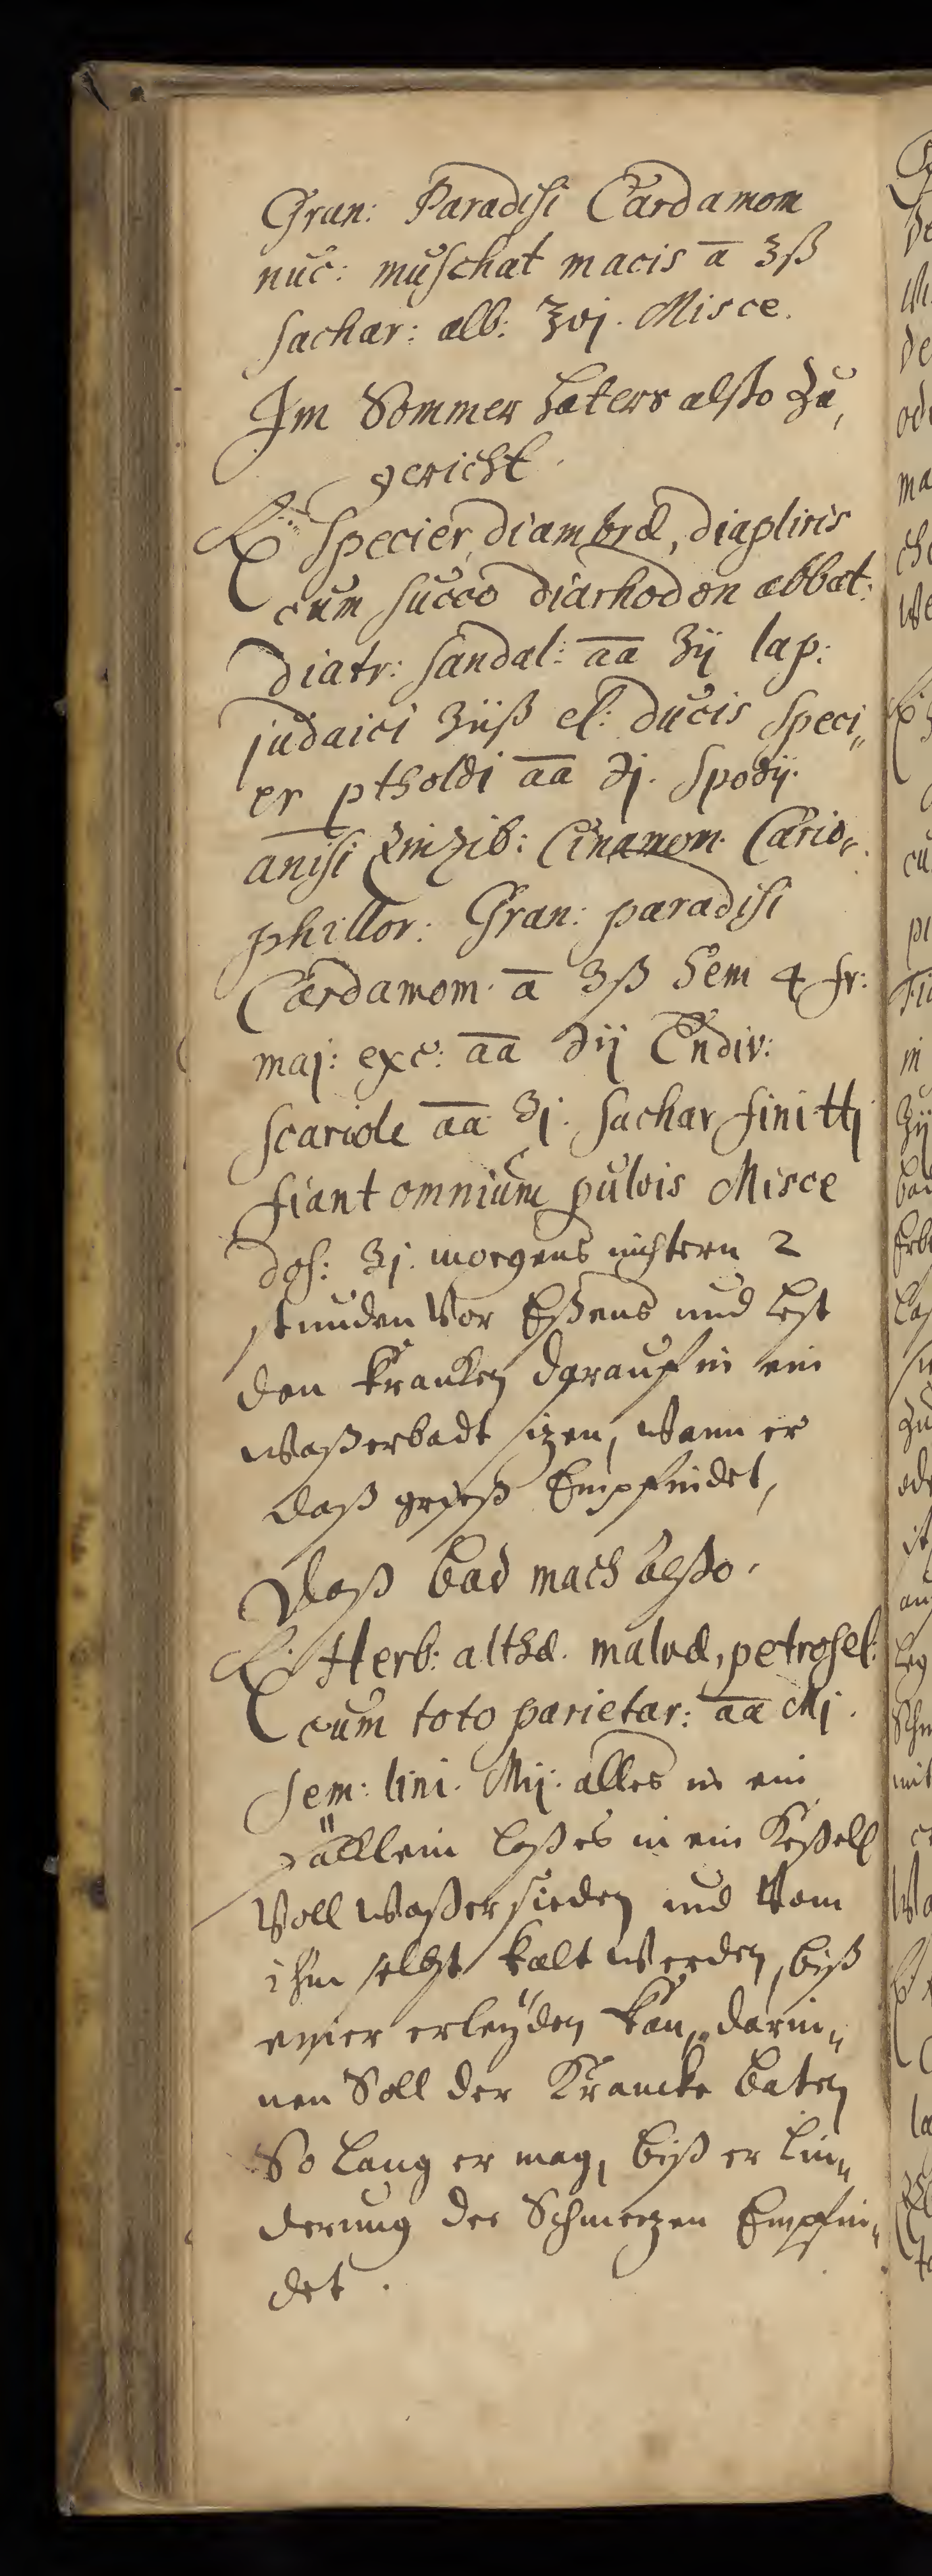 Gran: Paradisi Cardamom
nuc: muschat macis a ʒß
sachar: alb: ℥vj. Misce.
Im Sommer haters alßo zu,
gericht.
℞ Specier, diambræ, diapliris
cum succo diarhodon abbat:
diatr: sandal: aa ʒij lap:
judaici ʒiiß el: ducis speci„
er ptholdi aa ℈j. spodij.
anisi Zinzib: Cinamom. Cario„
phillor: Gran: paradisi
Cardamom. a ʒß Sem 4 fr:
maj: exc: aa ℈ij Endiv:
scariole aa ʒj. sachar fini ℔j
fiant omnium pulvis Misce
dos: ʒj. morgens nüchtern 2
stunden Vor Eßens und lest
den Krancken darauf in ein
waßerbadt sizen, wann er
daß grieß Empfindet,
Daß bad mach alßo.
℞ Herb: althæ. malvæ, petrosel:
cum toto parietar: aa Mj.
sem: lini. Mij. alles in ein
säcklein laß es in ein Keßell
Voll waßer sieden und Vom
ihm selbst kalt werden, biß
einer erleyden kan, darin„
nen Soll der Krancke baten
So lang er mag, biß er lin„
derung der Schmertzen Empfin„
det.